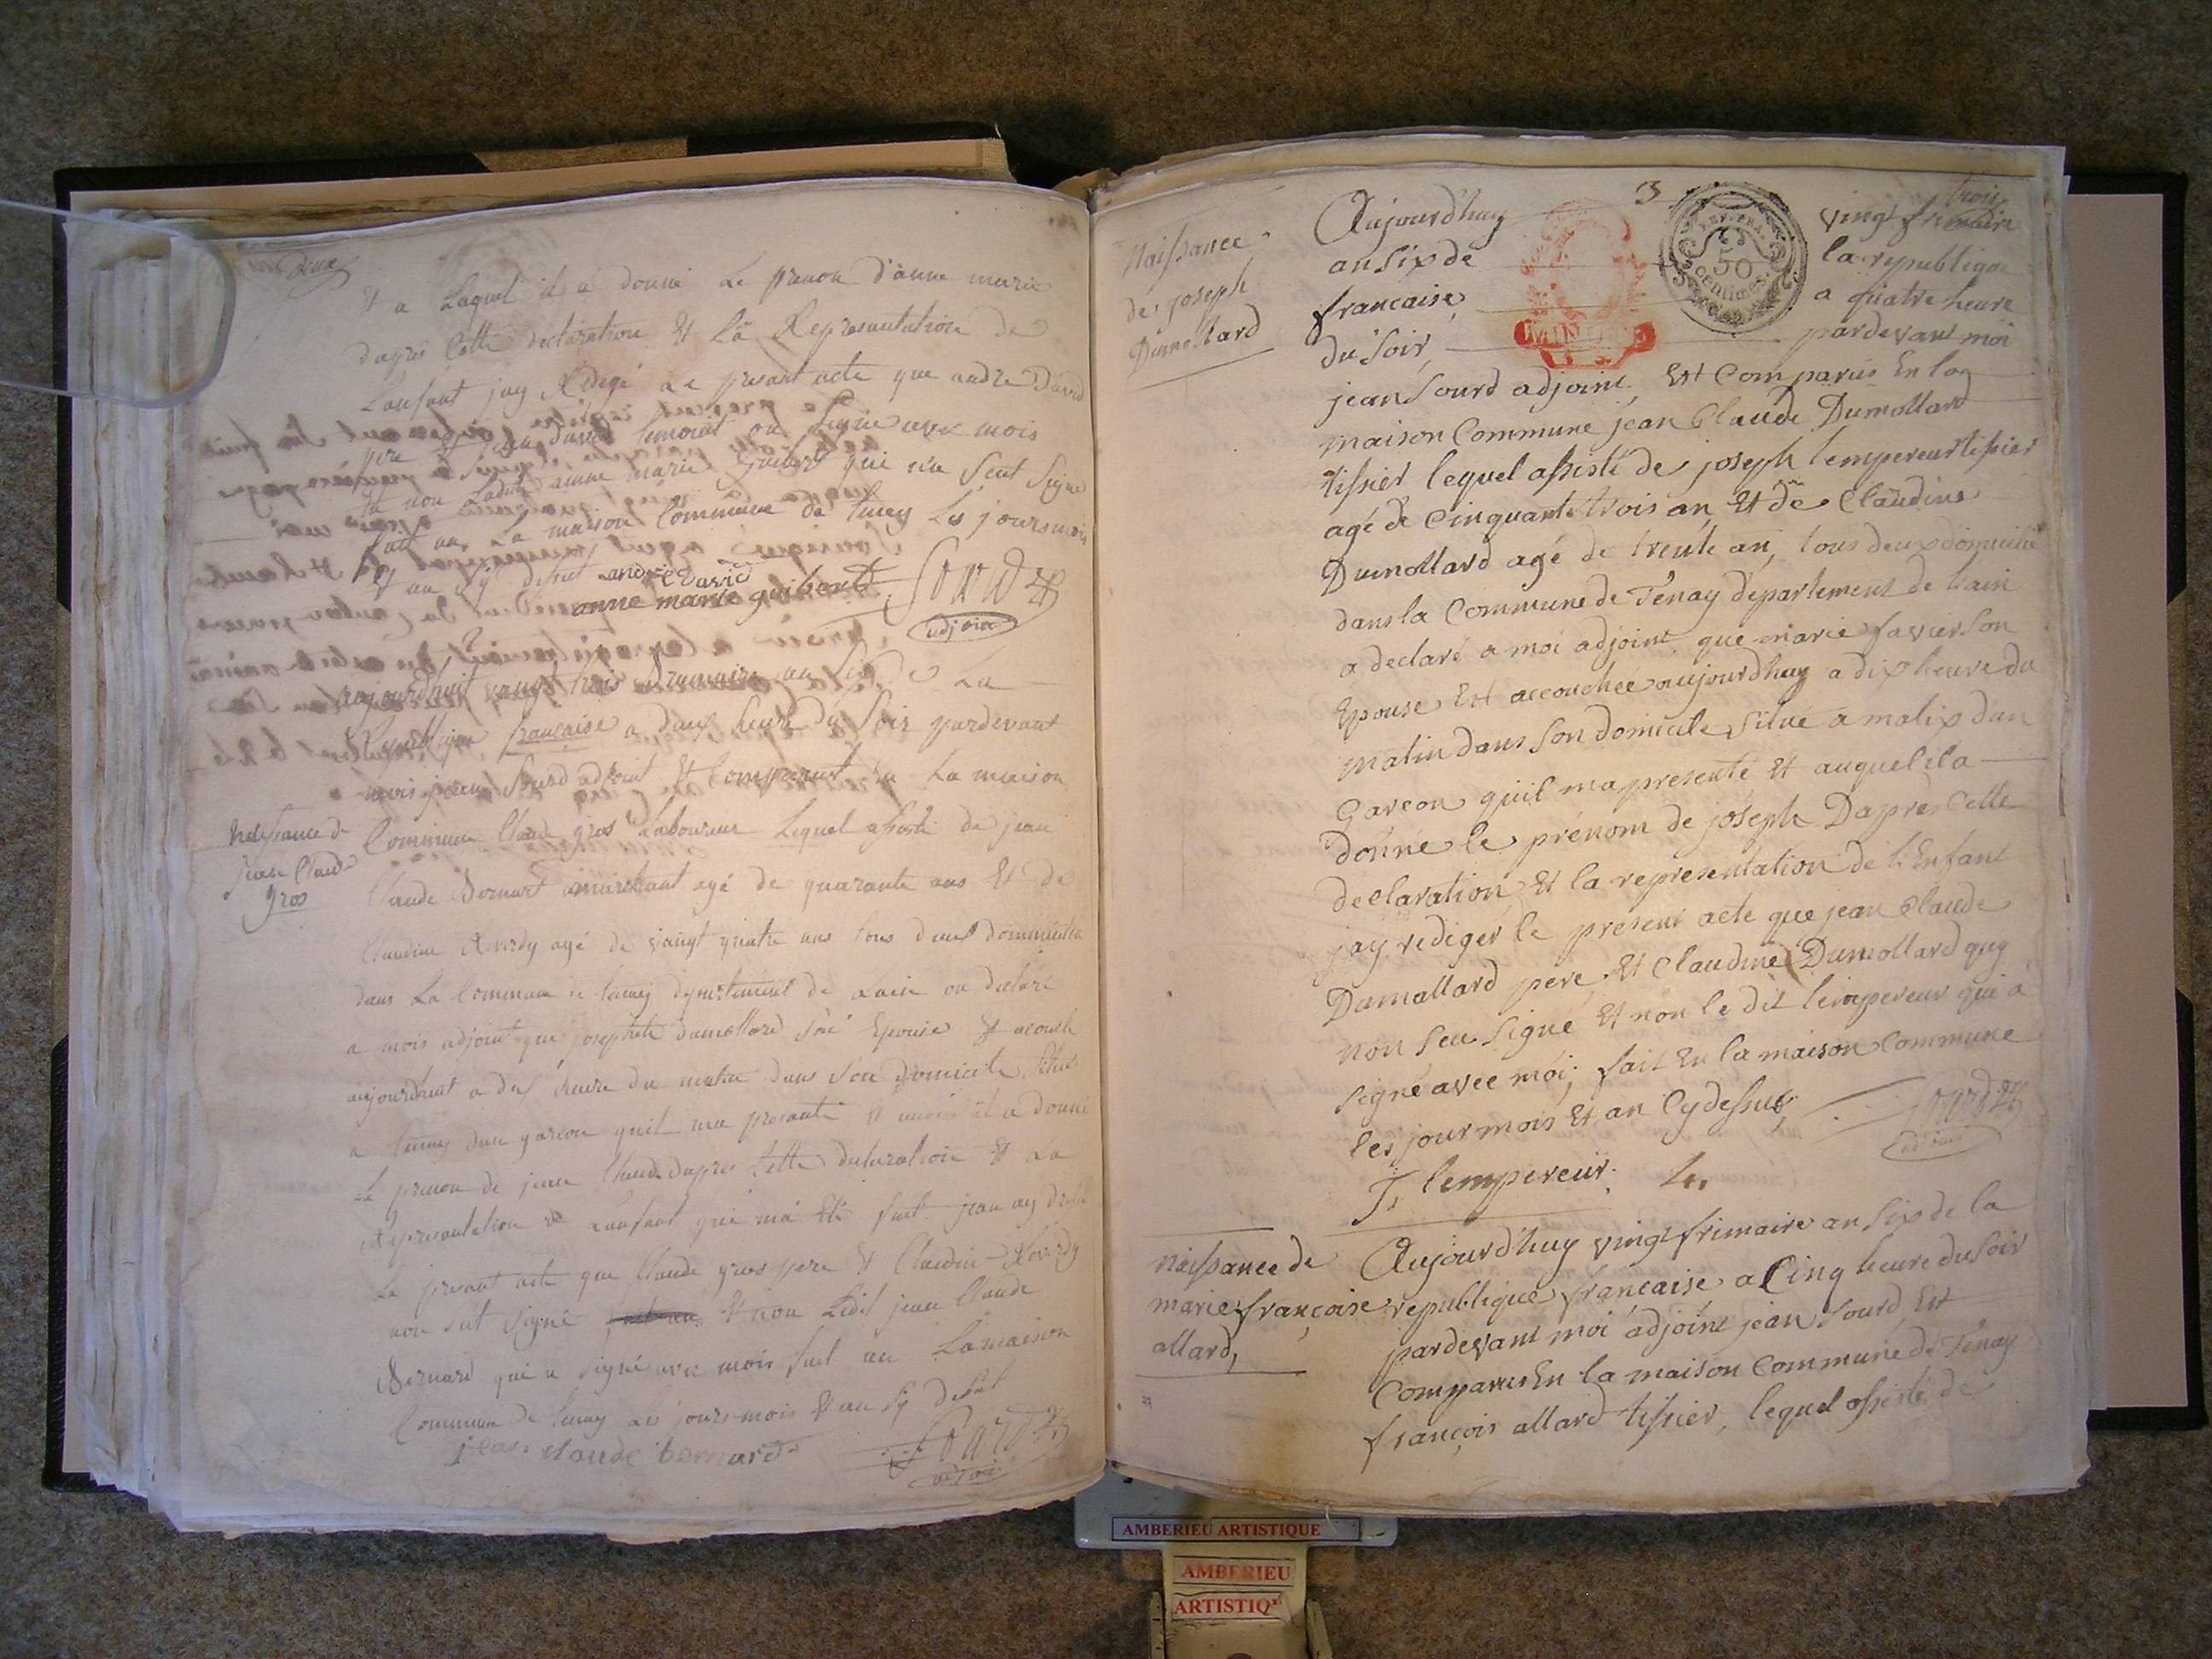 Deux
Et a Laquel il a donné Le prenon d'anne marie
dapres Cette declaration Et La Represantation de
Lanfant jay Redigé Le presant acte que andre David
pere Et jean David temoint on Signe avec mois
Et non Ladite anne marie guibert qui n'a Seut Signe
fait an La maison Commune de tenay Les jours mois
Et an cy desut
andre David
anne marie guibert
Sourd
adjoint
aujourdhuit vaingt trois Brumaire an Six de La
Republique française a deux heure du Soir pardevant
mois jean Sourd adjoint Et Comparut En La maison
Naissance de
jean Claude
gros
Commune Claude gros Laboureur Lequel assisté de jean
Claude Bernart marchant agé de quarante ans Et de
Claudine Reverdy agé de vaingt quatre ans tous deux Domicilié
dans La Commune de tenay departement de Lain on declaré
a mois adjoint que josephte dumollard son Epouse Et acouche
aujourdhuit a dix heure du matin dans Son Domicile Situé
a tenay dun garcon quil ma presanté Et auquel il a donné
Le prenon de jean Claude dapres Cette declaration Et La
Represantation de Lanfant qui ma Eté fait jean ay dressé
Le presant acte que Claude gros pere Et Claudine Reverdy
non sut signé Et non Ledit jean Claude
Bernard qui a signé avec mois fait an La maison
Commune de tenay Les jours mois Et an cy desut
jean claude bernard
Sourd
adjoint
3
naissance
de joseph
Dumollard
Aujourdhuy vingt trois frimaire
an Six de la republique
francaise, a quatre heure
du Soir, pardevant moi
50
CENTIMES
jean Sourd adjoint, Est Comparus En la
maison Commune jean Claude Dumollard
tissier lequel assisté de joseph lempereur tissier
agé de Cinquante trois an, Et de Claudine
Dumollard agé de trente an, tous deux domicilié
dans la Commune de Tenay departement de lain
a declaré a moi adjoint, que marie favier son
Epouse Est accouchée aujourdhuy a dix heure du
matin dans Son domicile, situé a malix d'un
Garcon quil ma presenté Et auquel il a
donné le prénom de joseph Dapres Cette
declaration, Et la representation de l'Enfant
jay rediger le present acte que jean Claude
Dumallard pere, Et Claudine Dumollard quy
non Seu Signé Et non le dit lempereur qui a
signé avec moi; fait En la maison Commune
les jour mois Et an Cy dessus,
Sourd
adjoint
J. lempereur
4
naissance de
marie françoise
allard,
Aujourd'huy vingt frimaire an Six de la
republique francaise a Cinq heure du Soir
pardevant moi adjoint jean Sourd, Est
Comparus En la maison Commune de Tenay
françois allard tissier, lequel assisté de
AMBERIEU ARTISTIQUE
AMBERIEU
ARTISTIQ